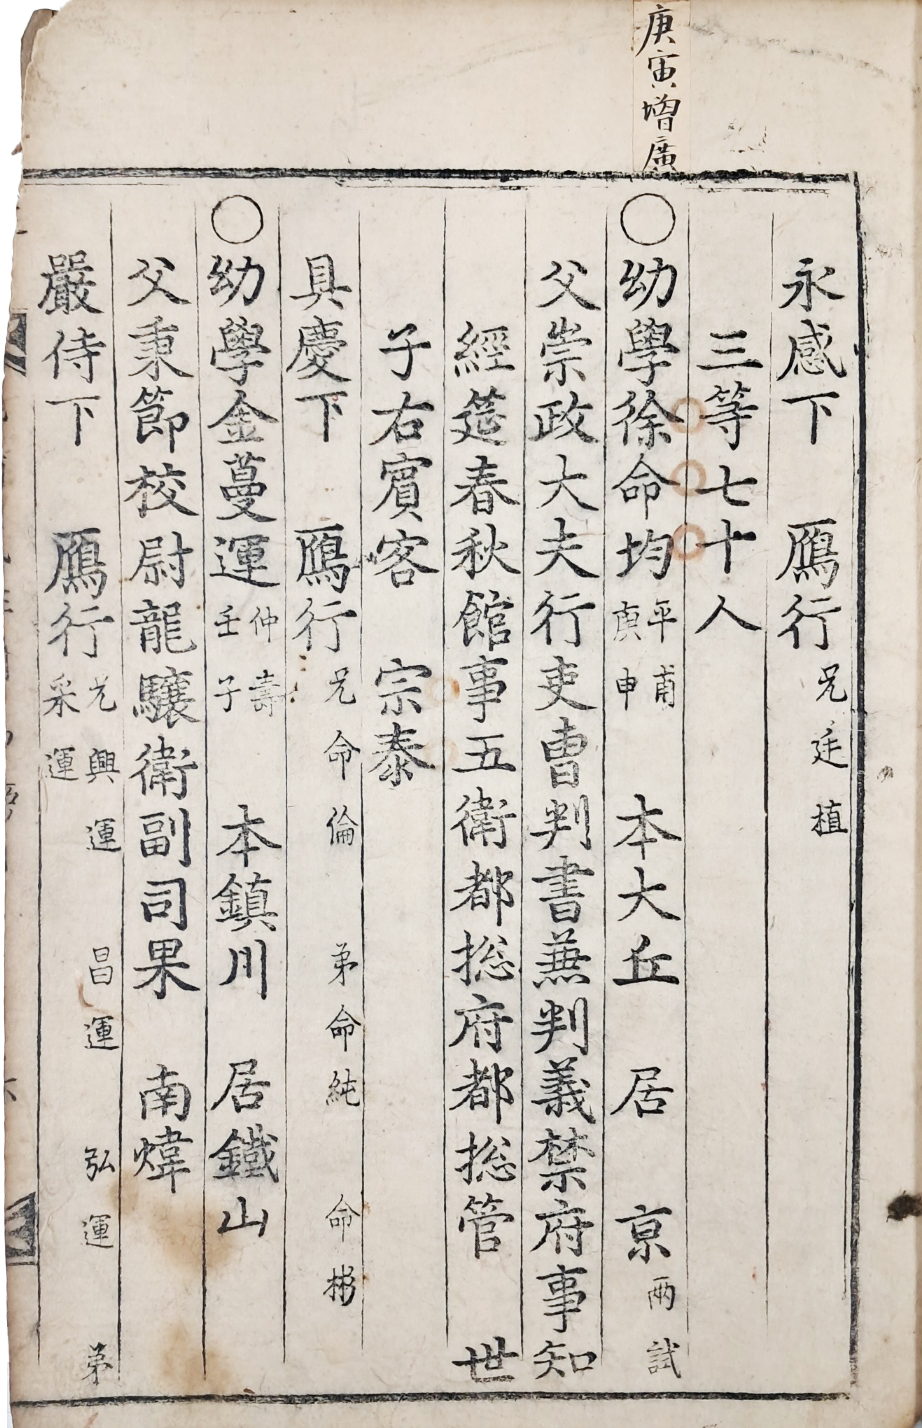 庚寅增廣
永感下 鴈行 兄廷植
三等七十人
○幼學徐命均 平甫 庚申 本大丘 居京 兩試
父崇政大夫行吏曹判書兼判義禁府事知
經筵春秋館事五衛都摠府都摠管 世
子右賓客 宗泰
具慶下 鴈行 兄命倫 弟命純 命彬
○幼學金蔓運 仲壽 壬子 本鎮川 居鐵山
父秉節校尉龍驤衛副司果 南煒
嚴侍下 鴈行 兄興運 昌運 弘運 弟采運